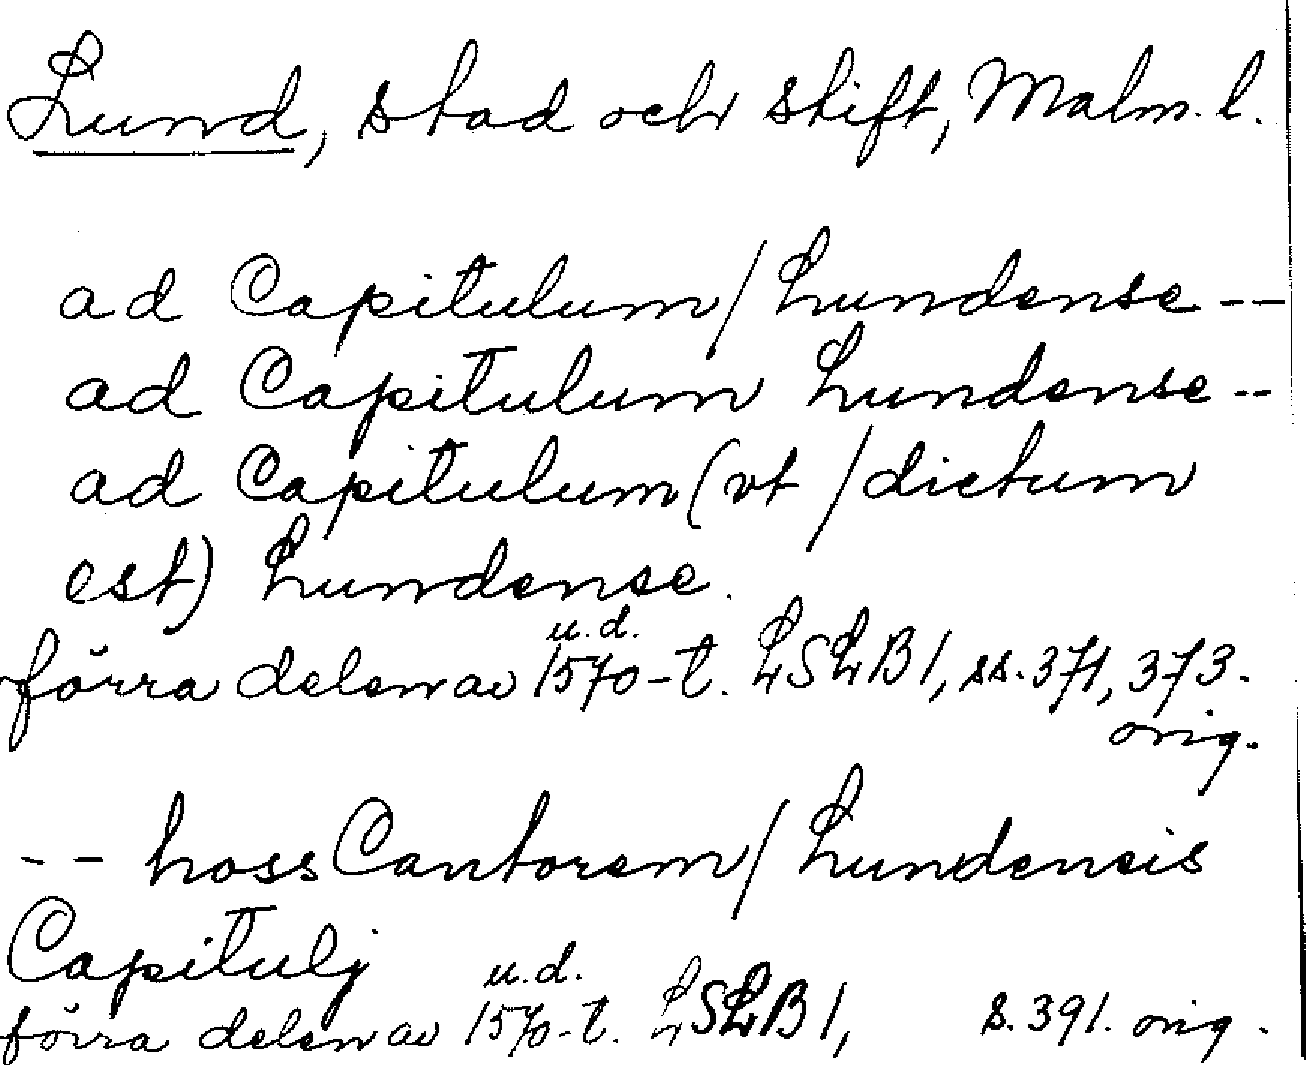 Lund, stad och stift, Malm. l.
ad Capitulum / Lundense --
ad Capitulum Lundense --
ad Capitulum (vt / dictum
est) Lundense.
u.d.
förra delen av 1570-t. LSLB 1, ss. 371, 373.
orig.
-- hoss Cantorem / Lundensis
Capitulj
u.d.
förra delen av 1570-t. LSLB 1, s. 391. orig.